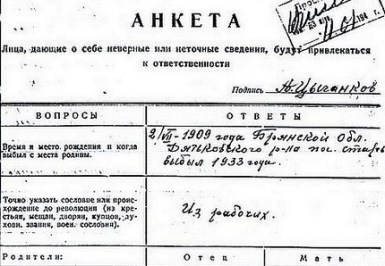 АНКЕТА
Лица, дающие о себе неверные или неточные сведения, будут привлекаться
к ответственности
Подпись А. Цыганков
ВОПРОСЫ
ОТВЕТЫ
Время и место рождения и когда
выбыл с места родины.
2/VII-1909 года Брянской Обл.
Дятьковского р-на пос. старь
выбыл 1933 года.
Точно указать сословие или проис-
хождение до революции (из кре-
стьян, мещан, дворян, купцов, ду-
ховн. звания, воен. сословия).
Из рабочих.
Родители:
Отец
Мать